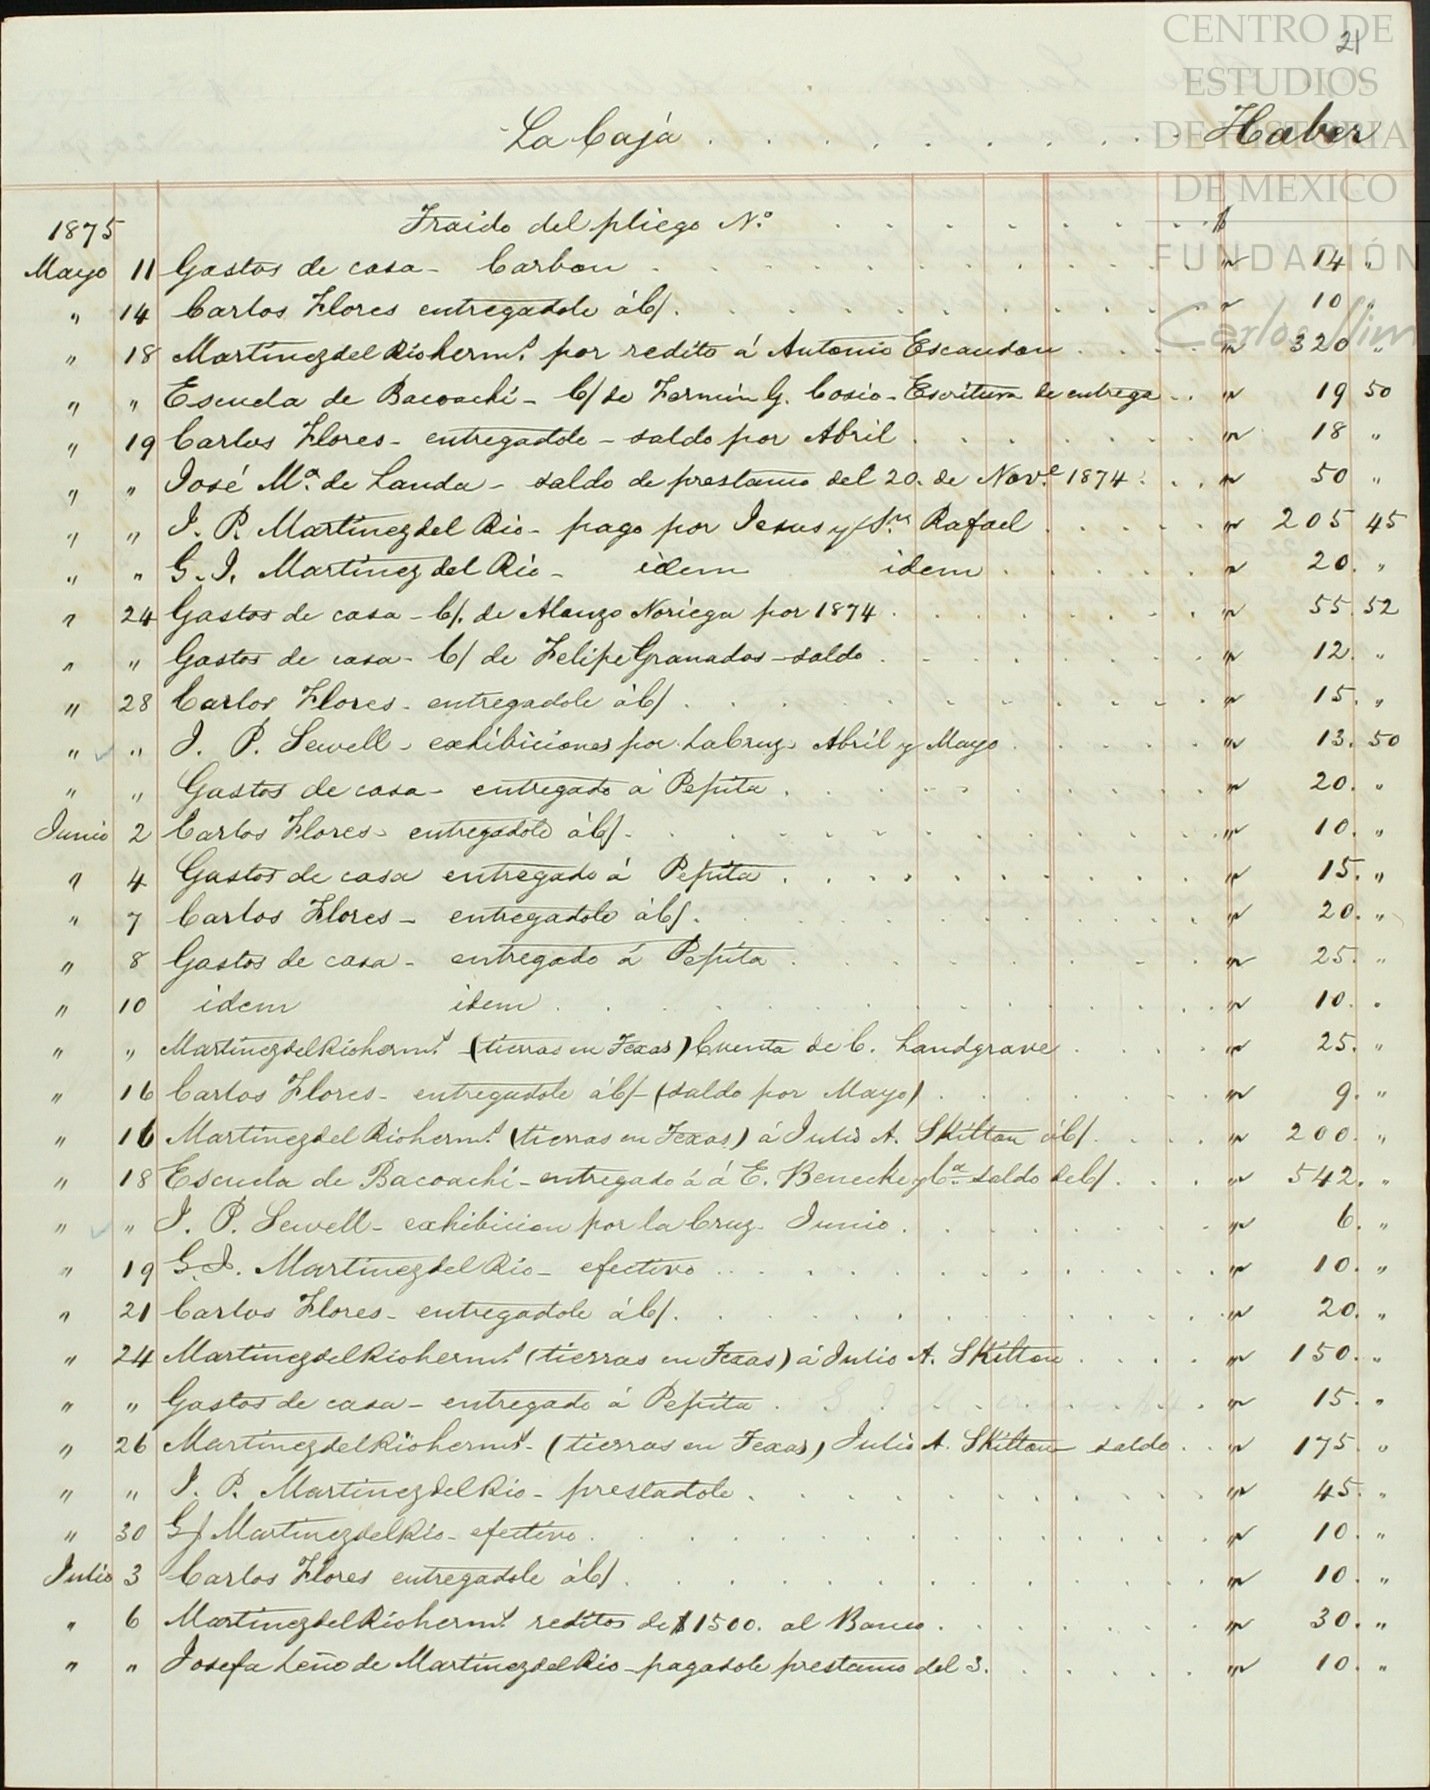 CENTRO DE
ESTUDIOS
DE HISTORIA
DE MEXICO
FUNDACIÓN
Carlos Slim
21
La Caja . . . . . . . . . . Haber
1875 Traido del pliego N.º . . . . . . . $
Mayo 11 Gastos de casa - Carbon . . . . " 14 "
" 14 Carlos Flores entregadole á C/ . . . . " 10 "
" 18 Martinez del Rio herm.s por redito á Antonio Escandon . . . . " 320 "
" " Escuela de Bacoachi - C/ de Fermin G. Cosio - Escritura de entrega . . " 19 50
" 19 Carlos Flores - entregadole - saldo por Abril . . . . " 18 "
" " José M.a de Landa - saldo de prestamo del 20. de Nov.e 1874 . . . " 50 "
" " J. P. Martinez del Rio - pago por Jesus y Rafael . . . . " 205 45
" " G. J. Martinez del Rio - idem idem . . . . " 20. "
" 24 Gastos de casa - C/. de Alonzo Noriega por 1874 . . . . " 55. 52
" " Gastos de casa - C/ de Felipe Granados - saldo . . . . " 12. "
" 28 Carlos Flores - entregadole á C/ . . . . " 15. "
" " J. P. Sewell - exhibiciones por La Cruz. Abril y Mayo . . . . " 13. 50
" " Gastos de casa - entregado á Pepita . . . . " 20. "
Junio 2 Carlos Flores - entregadole á C/ . . . . " 10. "
" 4 Gastos de casa entregado á Pepita . . . . " 15. "
" 7 Carlos Flores - entregadole á C/ . . . . " 20. "
" 8 Gastos de casa - entregado á Pepita . . . . " 25. "
" 10 idem idem . . . . " 10. "
" " Martinez del Rio herm.s - (tierras en Texas) Cuenta de C. Landgrave . . . . " 25. "
" 16 Carlos Flores - entregadole á C/ - (saldo por Mayo) . . . . " 9. "
" 16 Martinez del Rio herm.s (tierras en Texas) á Julio A. Skilton á C/ . . . . " 200. "
" 18 Escuela de Bacoachi - entregado á á E. Benecke y C.a saldo de C/ . . . " 542. "
" " J. P. Sewell - exhibicion por la Cruz. Junio . . . . " 6. "
" 19 G. J. Martinez del Rio - efectivo . . . . " 10. "
" 21 Carlos Flores - entregadole á C/ . . . . " 20. "
" 24 Martinez del Rio herm.s (tierras en Texas) á Julio A. Skilton . . . . " 150. "
" " Gastos de casa - entregado á Pepita . . . . " 15. "
" 26 Martinez del Rio herm.s - (tierras en Texas) Julio A. Skilton saldo . . " 175. "
" " J. P. Martinez del Rio - prestadole . . . . " 45. "
" 30 G J Martinez del Rio - efectivo . . . . " 10. "
Julio 3 Carlos Flores entregadole á C/ . . . . " 10. "
" 6 Martinez del Rio herm.s reditos de $1500. al Banco . . . . " 30. "
" " Josefa Leño de Martinez del Rio - pagadole prestamo del 3. . . . . " 10. "